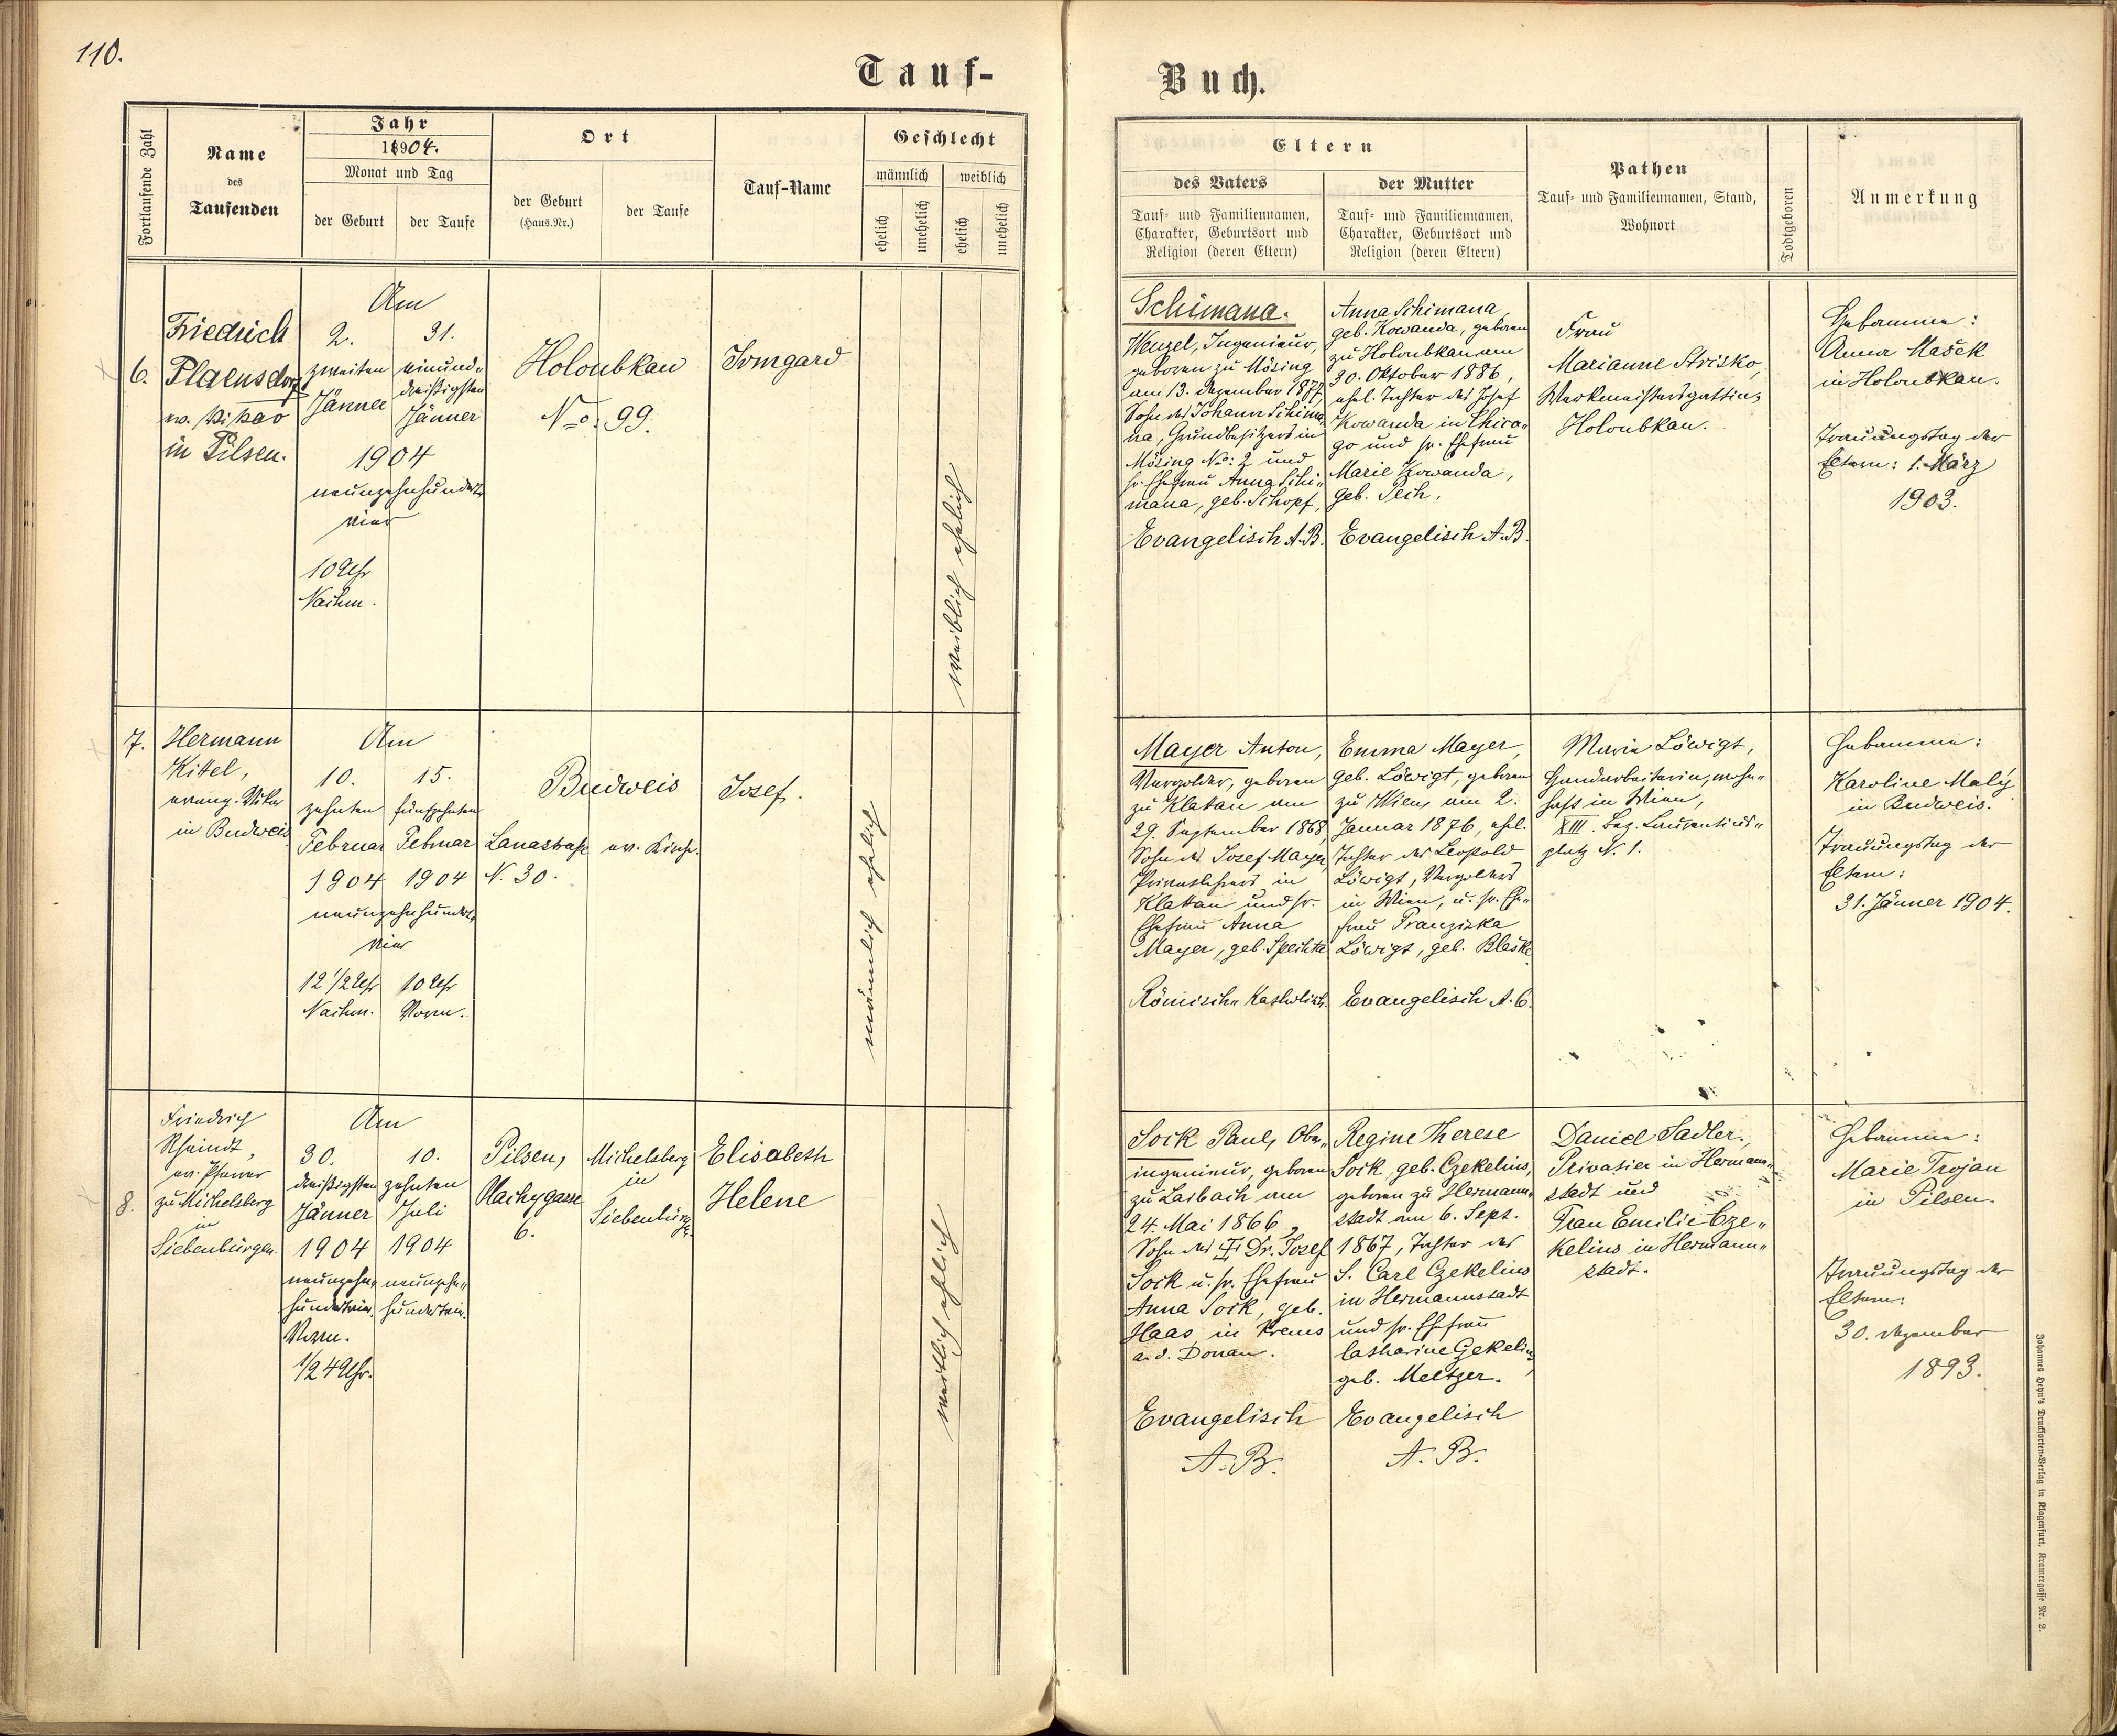 110.
Tauf-
Buch.
Fortlaufende Zahl
Name
des
Taufenden
Jahr
1904.
Monat und Tag
der Geburt
der Taufe
Ort
der Geburt
(Haus.Nr.)
der Taufe
Tauf-Name
Geschlecht
männlich
weiblich
ehelich
unehelich
ehelich
unehelich
Eltern
des Vaters
Tauf- und Familiennamen,
Charakter, Geburtsort und
Religion (deren Eltern)
der Mutter
Tauf- und Familiennamen,
Charakter, Geburtsort und
Religion (deren Eltern)
Pathen
Tauf- und Familiennamen, Stand,
Wohnort
Todtgeboren
Anmerkung
6.
Friedrich
ev. Vikar
in Pilsen.
Am
2.
zweiten
Jänner
31.
einund-
dreißigsten
Jänner
1904
neunzehnhundert-
vier
10 Uhr
Nachm.
Holoubkau
No: 99.
Irmgard
weiblich ehelich
Schimana.
Wenzel, Ingenieur,
geboren zu Mösing
am 13. Dezember 1877,
Sohn des Johann Schima-
na, Grundbesitzers in
Mösing No: 2 und
sr. Ehefrau Anna Schi-
mana, geb. Schopf,
Evangelisch A.B.
Anna Schimana,
geb. Kowanda, geboren
zu Holoubkau am
30. Oktober 1886,
ehel. Tochter des Josef
Kowanda in Chica-
go und sr. Ehefrau
Marie Kowanda,
geb. Pech.
Evangelisch A.B.
Frau
Marianne Strisko,
Werkmeistersgattin,
Holoubkau.
Hebamme:
Anna Mašek
in Holoubkau.
Trauungstag der
Eltern: 1. März
1903.
7.
Hermann
Kittel,
evang. Vikar
in Budweis
Am
10.
zehnten
Februar
1904
15.
fünfzehnten
Februar
1904
neunzehnhundert-
vier
12 1/2 Uhr
Nachm.
10 Uhr
Vorm.
Budweis
Lanastraße
N. 30.
ev. Kirche.
Josef.
männlich ehelich
Mayer Anton,
Vergolder, geboren
zu Klattau am
29. September 1868,
Sohn des Josef Mayer,
Privatlehrers in
Klattau und sr.
Ehefrau Anna
Mayer, geb. Spechta
Römisch-Katholisch.
Emma Mayer,
geb. Löwigt, geboren
zu Wien, am 2.
Januar 1876, ehel.
Tochter des Leopold
Löwigt, Vergolders
in Wien, u. sr. Ehe-
frau Franziska
Löwigt, geb. Blaške.
Evangelisch A.C.
Maria Löwigt,
Handarbeiterin, wohn-
haft in Wien,
XIII. Bez. Laurentius-
platz N. 1.
Hebamme:
Karoline Malý
in Budweis.
Trauungstag der
Eltern:
31. Jänner 1904.
8.
Friedrich
Rheindt,
ev. Pfarrer
zu Michelsberg
in
Siebenbürgen.
Am
30.
dreißigsten
Jänner
1904
neunzehn-
hundertvier.
Vorm.
1/2 4 Uhr.
10.
zehnten
Juli
1904
neunzehn-
hundertvier.
Pilsen,
6.
Michelsberg
in
Siebenbürg.
Elisabeth
Helene
weiblich ehelich
Sock Paul, Ober-
ingenieur, geboren
zu Laibach am
24. Mai 1866,
Sohn des † Dr. Josef
Sock u. sr. Ehefrau
Anna Sock, geb.
Haas in Krems
a.d. Donau.
Evangelisch
A.B.
Regine Therese
Sock, geb. Czekelius,
geboren zu Hermann-
stadt am 6. Sept.
1867, Tochter des
S. Carl Czekelius
in Hermannstadt
und sr. Ehefrau
Catharine Czekelius,
geb. Meltzer.
Evangelisch
A.B.
Daniel Sadler,
Privatier in Hermann-
stadt und
Frau Emilie Cze-
kelius in Hermann-
stadt.
Hebamme:
Marie Trojan
in Pilsen.
Trauungstag der
Eltern:
30. Dezember
1893.
Johannes Heyn's Drucksorten-Verlag in Klagenfurt, Kramergasse Nr. 2.